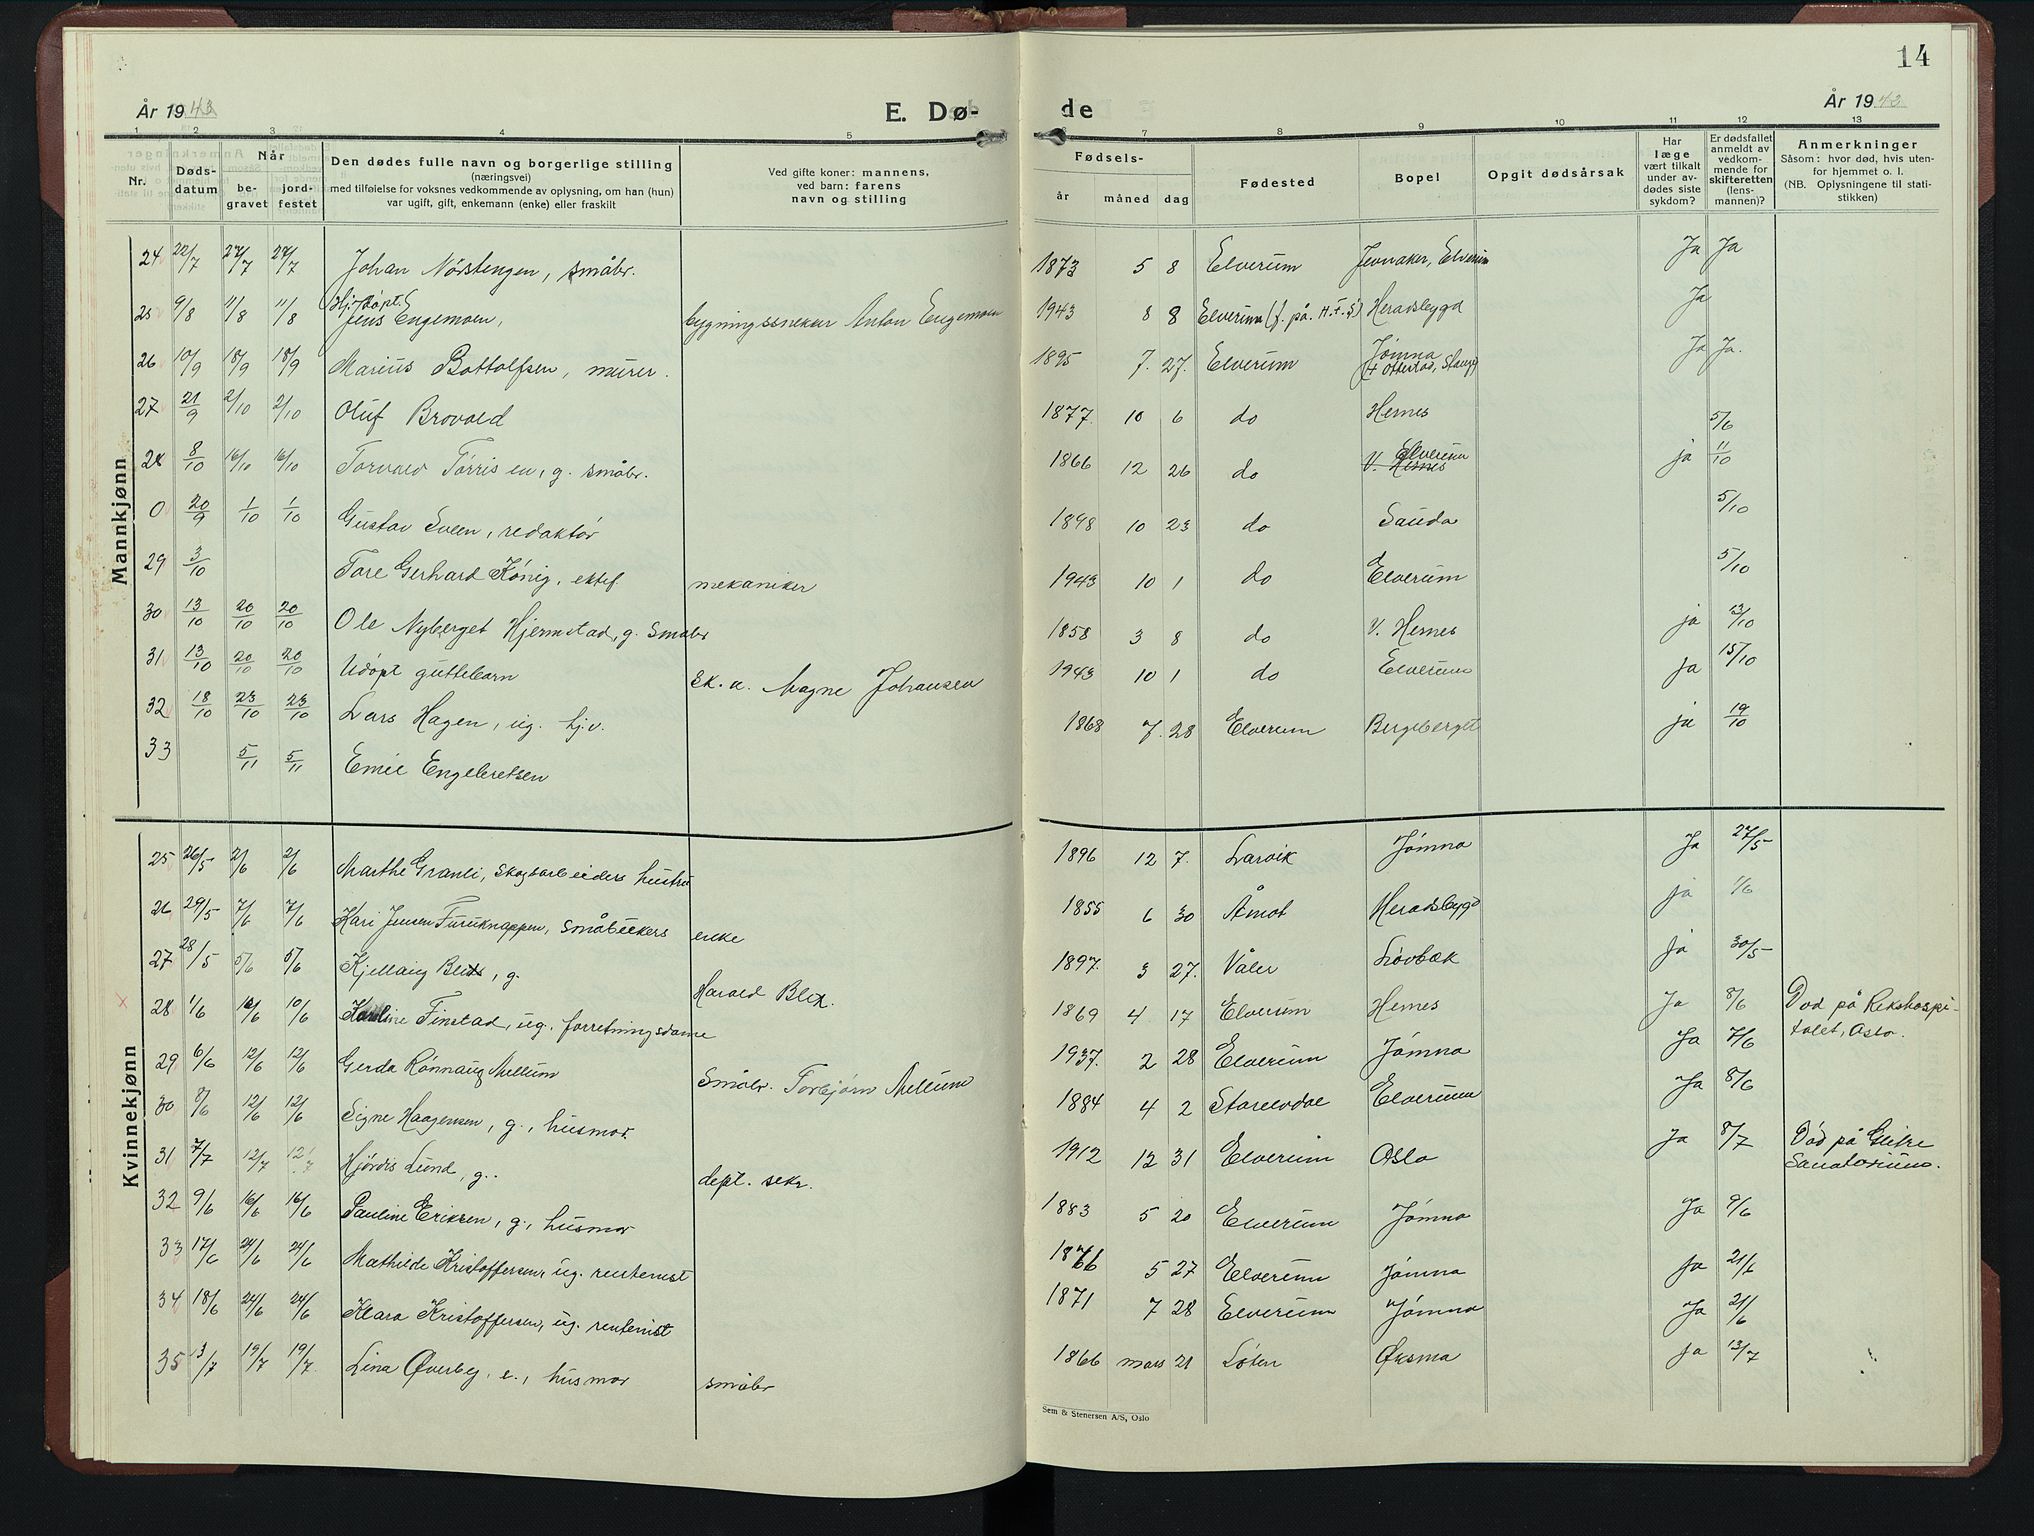 14
År 1943
E. Dø-
de
År 1943
1 2 3 4 5
6 7 8 9 10 11 12 13
Nr.
Døds-
datum
Når
be-
gravet
jord-
festet
Den dødes fulle navn og borgerlige stilling
(næringsvei)
med tilføielse for voksnes vedkommende av oplysning, om han (hun)
var ugift, gift, enkemann (enke) eller fraskilt
Ved gifte koner: mannens,
ved barn: farens
navn og stilling
Fødsels-
år måned dag
Fødested
Bopel
Opgit dødsårsak
Har
læge
vært tilkalt
under av-
dødes siste
sykdom?
Er dødsfallet
anmeldt av
vedkom-
mende for
skifteretten
(lens-
mannen)?
Anmerkninger
Såsom: hvor død, hvis uten-
for hjemmet o. l.
(NB. Oplysningene til stati-
stikken)
Mannkjønn
24 22/7 27/7 27/7 Johan Nørstengen, småbr. 1873 5 8 Elverum Jevnaker, Elverum Ja Ja
25 9/8 11/8 11/8 Hj.døpt. Jens Engemoen, bygningssnekker Anton Engemoen 1943 8 8 Elverum (f. på H.F.S) Heradsbygd Ja
26 10/9 18/9 18/9 Marius Bottolfsen, murer. 1895 7. 27. Elverum Jømna († Ottestad, Stange) Ja Ja.
27 21/9 2/10 2/10 Oluf Brovold 1877. 10 6 do Hernes 5/6
28 8/10 16/10 16/10 Torvald Tørrisen, g. småbr. 1866 12 26 do V. Hernes Elverum ja 11/10
0 20/9 1/10 1/10 Gustav Sveen, redaktør 1898 10 23 do Sauda 5/10
29 3/10 Tore Gerhard König, ektef. mekaniker 1943 10 1 do Elverum 5/10
30 13/10 20/10 20/10 Ole Nyberget Hjermstad, g. småbr 1858 3 8 do V. Hernes ja 13/10
31 13/10 20/10 20/10 Udøpt guttebarn sk. a. Magne Johansen 1943 10 1 do Elverum ja 15/10
32 18/10 23/10 23/10 Lars Hagen, ug. hj.v. 1868 7. 28 Elverum Bergeberget ja 19/10
33 5/11 5/11 Emil Engebretsen
Kvinnekjønn
25 26/5 2/6 2/6 Marthe Granli, skogsarbeiders hustru 1896 12 7. Larvik Jømna Ja 27/5
26 29/5 7/6 7/6 Kari Jensen Furuknappen, småbrukers enke 1855 6 30 Åmot Heradsbygd ja 1/6
27 28/5 5/6 5/6 Kjellaug Blix, g. Harald Blix. 1897. 3 27. Våler Løvbæk ja 30/5
28 1/6 10/6 10/6 Karoline Finstad, ug. forretningsdame 1869 4. 17 Elverum Hernes Ja 8/6 Død på Rikshospi-
talet, Oslo.
29 6/6 12/6 12/6 Gerda Rønnaug Mellum Småbr. Torbjørn Mellum 1937. 2 28 Elverum Jømna Ja 7/6
30 8/6 12/6 12/6 Signe Haagensen, g., husmor. 1884 4 2 Storelvdal Elverum Ja 8/6
31 7/7 12/7 12/7 Hjørdis Lund, g.. dept. sekr. 1912 12 31 Elverum Oslo Ja 8/7 Død på Glitre
Sanatorium.
32 9/6 16/6 16/6 Pauline Eriksen, g., husmor 1883 5 20 Elverum Jømna Ja 9/6
33 17/6 24/6 24/6 Mathilde Kristoffersen, ug. rentenist 1866 5 27 Elverum Jømna Ja 21/6
34 18/6 24/6 24/6 Klara Kristoffersen, ug. rentenist 1871 7 28 Elverum Jømna Ja 21/6
35 13/7 19/7 19/7 Lina Øverby, e., husmor småbr 1866 mars 21 Løten Øksna ja 13/7
Sem & Stenersen A/S, Oslo